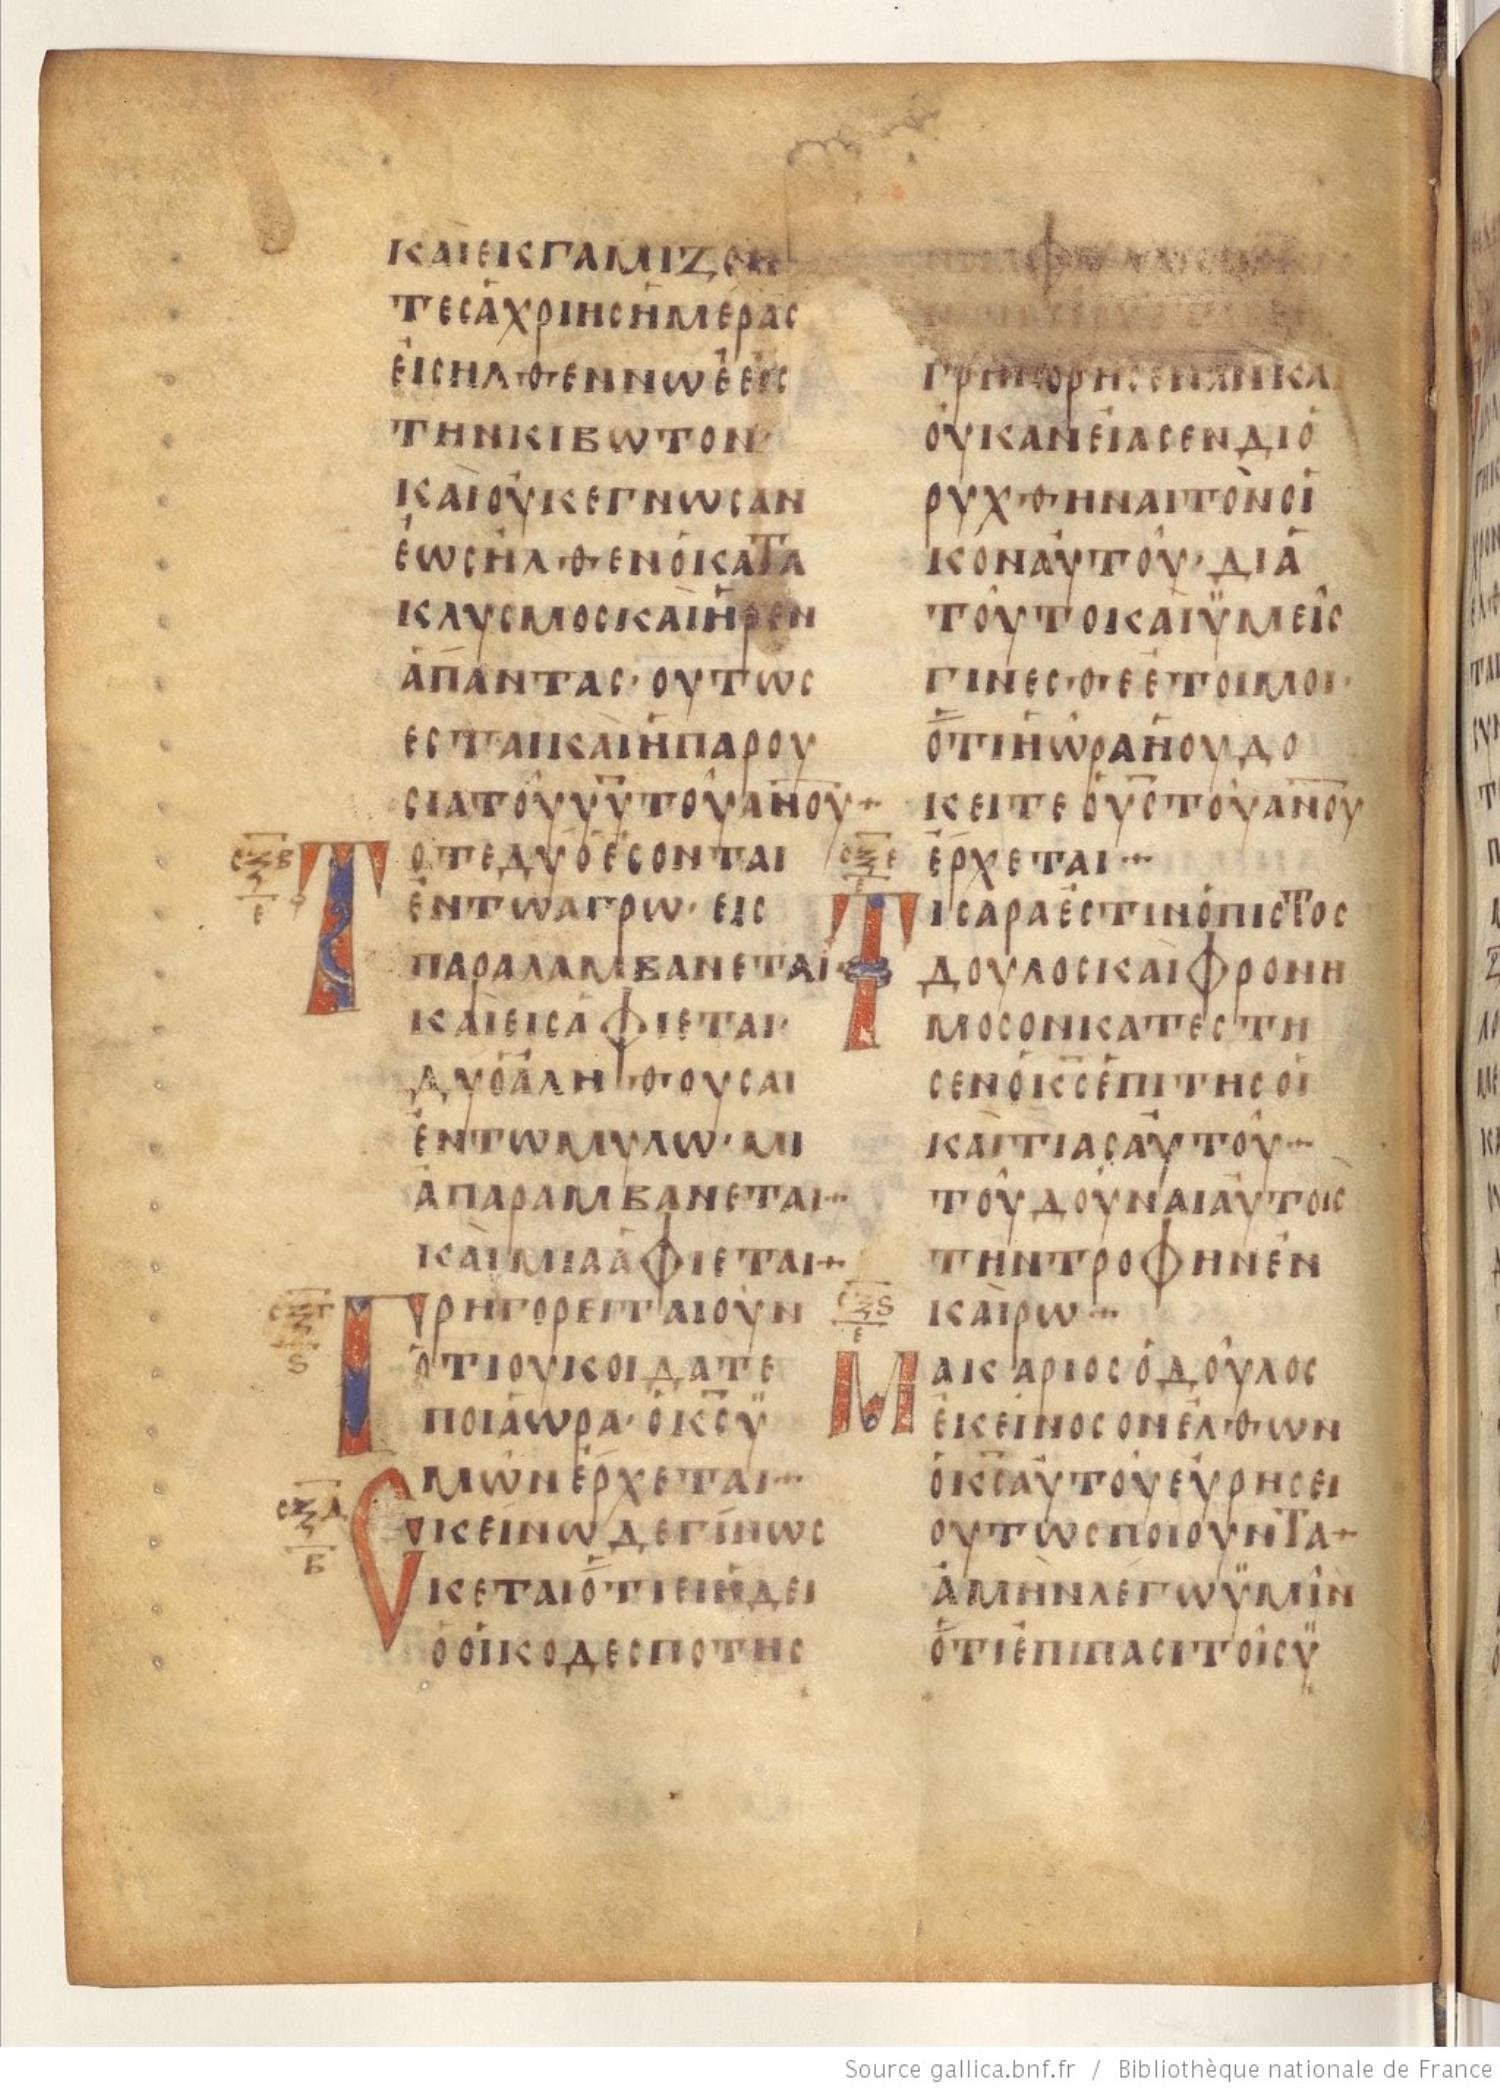 ΚΑΙΕΚΓΑΜΙΖΟΝ
ΤΕϹἈΧΡΙΗϹἩΜΕΡΑϹ
ΕἸϹΗΛΘΕΝΝΩΕἘΙϹ
ΤΗΝΚΙΒΩΤΟΝ
ΚΑῚΟΥΚΕΓΝΩϹΑΝ
ἝΩϹΗΛΘΕΝὉΚΑΤΑ
ΚΛΥϹΜΟϹΚΑῚΗΡΕΝ
ἉΠΑΝΤΑϹ· ΟΥΤΩϹ
ΕϹΤΑΙΚΑῚἩΠΑΡΟΥ
ϹΙΑΤΟΥΥ̅Υ̅ΤΟΥΑ̅Ν̅Ο̅Υ̅+
ϹΞΒ
Ε
ΤΟΤΕΔΥΟἜϹΟΝΤΑΙ
ἘΝΤΩΑΓΡΩ· ΕΙϹ
ΠΑΡΑΛΑΜΒΑΝΕΤΑΙ·
ΚΑῚΕΙϹἈΦΙΕΤΑΙ·
ΔΥΟἈΛΗΘΟΥϹΑΙ
ἘΝΤΩΜΥΛΩ· ΜΙ
ἈΠΑΡΑΜΒΑΝΕΤΑΙ+
ΚΑῚΜΙΑἈΦΙΕΤΑΙ+
ϹΞΓ
Ϛ
ΓΡΗΓΟΡΕΙΤΑΙΟΥΝ
ὉΤΙΟΥΚΟΙΔΑΤΕ
ΠΟΙΑΩΡΑ· ὉΚ̅Ϲ̅Ϋ
ΜΩΝΕΡΧΕΤΑΙ+
ϹΞΔ
Β
ΕΚΕΙΝΩΔΕΓΙΝΩϹ
ΚΕΤΑΙὍΤΙΕΙΗΔΕΙ
ὉΟἸΚΟΔΕϹΠΟΤΗϹ
ΓΡΗΓΟΡΗϹΕΝΑΝΚΑΙ
ΟΥΚΑΝΕΙΑϹΕΝΔΙΟ
ΡΥΧΘΗΝΑΙΤΟΝΟΙ
ΚΟΝΑΥΤΟΥ· ΔΙΑ
ΤΟΥΤΟΚΑῚΫΜΕΙϹ
ΓΙΝΕϹΘΕἙΤΟΙΜΟΙ·
ὍΤΙἩΩΡΑΗΟΥΔΟ
ΚΕΙΤΕὉΥ̅Ϲ̅ΤΟΥΑ̅Ν̅Ο̅Υ̅
ἘΡΧΕΤΑΙ+
ϹΞΕ
Ε
ΤΙϹΑΡΑἘϹΤΙΝὉΠΙϹΤΟϹ
ΔΟΥΛΟϹΚΑῚΦΡΟΝΗ
ΜΟϹΟΝΚΑΤΕϹΤΗ
ϹΕΝὉΚ̅Ϲ̅ἘΠΙΤΗϹΟΙ
ΚΑΙΤΙΑϹΑΥΤΟΥ+
ΤΟΥΔΟΥΝΑΙΑΥΤΟΙϹ
ΤΗΝΤΡΟΦΗΝΕΝ
ΚΑΙΡΩ+
ϹΞϚ
Ε
ΜΑΚΑΡΙΟϹὉΔΟΥΛΟϹ
ἘΚΕΙΝΟϹΟΝΕΛΘΩΝ
ὉΚ̅Ϲ̅ΑΥΤΟΥΕΥΡΗϹΕΙ
ΟΥΤΩϹΠΟΙΟΥΝΤΑ+
ἈΜΗΝΛΕΓΩΫΜΙΝ
ὍΤΙἘΠΙΠΑϹΙΤΟΙϹΫ
Source gallica.bnf.fr / Bibliothèque nationale de France